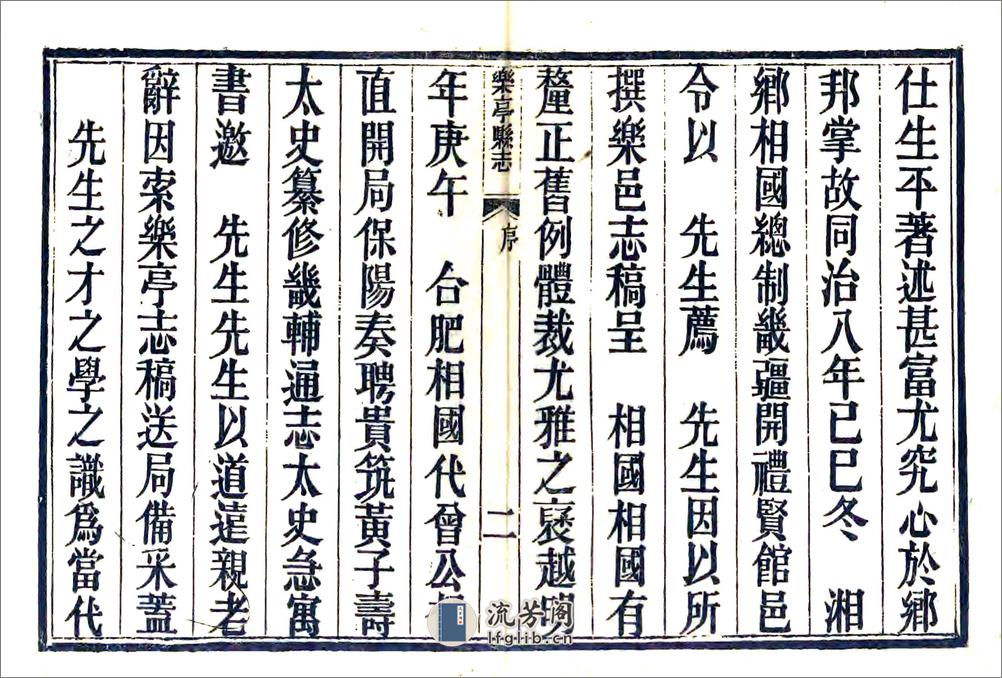 仕生平著述甚富尤究心於鄉
邦掌故同治八年己巳冬　湘
鄉相國總制畿疆開禮賢館邑
令以　先生薦　先生因以所
撰樂邑志稿呈　相國相國有
釐正舊例體裁尤雅之褒越明
樂亭縣志　序　二
年庚午　合肥相國代曾公
直開局保陽奏聘貴筑黃子壽
太史纂修畿輔通志太史急寓
書邀　先生先生以道遠親老
辭因索樂亭志稿送局備采蓋
先生之才之學之識爲當代
流芳阁
lfglib.cn